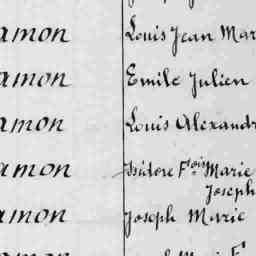 amon Louis Jean Mar
amon Emile Julien
amon Louis Alexandr
amon Isidore Fois Marie
Joseph
amon Joseph Marie